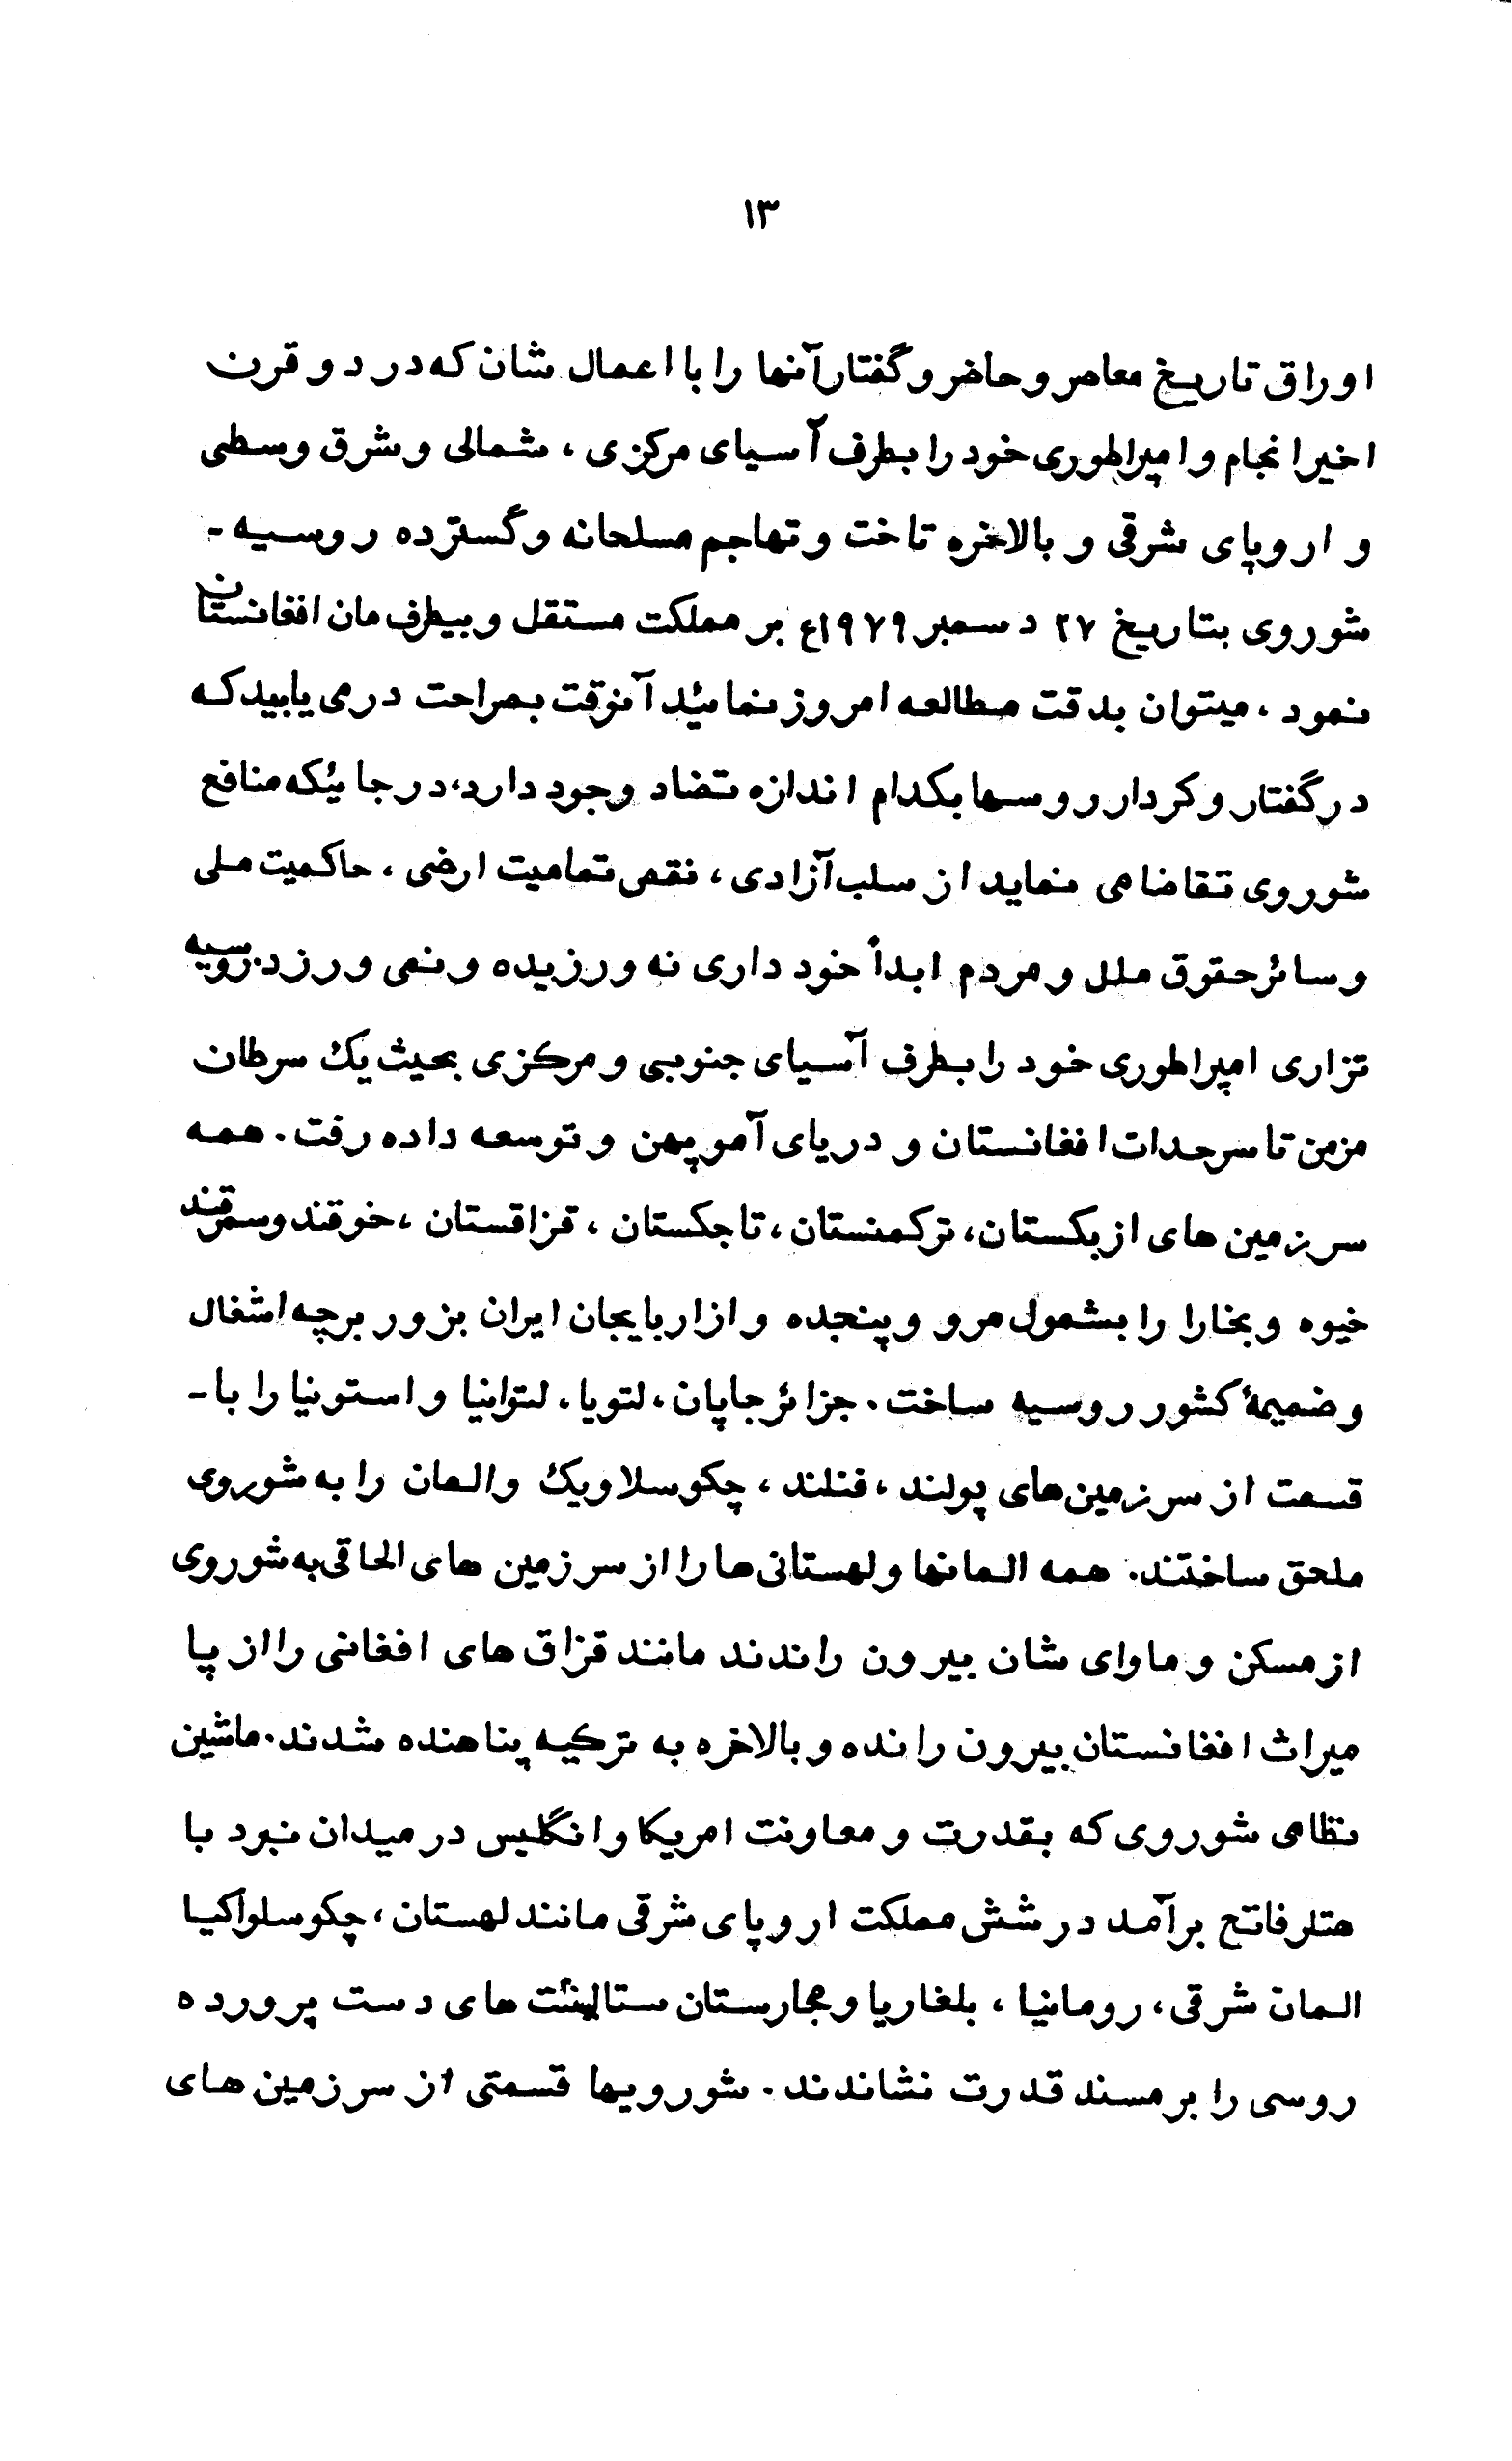 ۱۳
اوراق تاریخ معاصر و حاضر و گفتار آنها را با اعمال شان که در دو قرن
اخیر انجام و امپراطوری خود را بطرف آسیای مرکزی ، شمالی و شرق وسطی
و اروپای شرقی و بالاخره تاخت و تهاجم مسلحانه و گسترده روسیه -
شوروی بتاریخ ۲۷ دسمبر ۱۹۷۹ع بر مملکت مستقل و بیطرف مان افغانستان
نمود ، میتوان بدقت مطالعه امروز نمائید آنوقت بصراحت در می یابید که
در گفتار و کردار روسها بکدام اندازه تضاد وجود دارد، در جائیکه منافع
شوروی تقاضا می نماید از سلب آزادی ، نقص تمامیت ارضی ، حاکمیت ملی
و سائر حقوق ملل و مردم ابداً خود داری نه ورزیده و نمی ورزد. روسیه
تزاری امپراطوری خود را بطرف آسیای جنوبی و مرکزی بحیث یک سرطان
مزمن تا سرحدات افغانستان و دریای آمو پهن و توسعه داده رفت . همه
سرزمین های ازبکستان، ترکمنستان ، تاجکستان ، قزاقستان ، خوقند و سمرقند
خیوه و بخارا را بشمول مرو و پنجده و ازاربایجان ایران بزور برچه اشغال
و ضمیمۀ کشور روسیه ساخت . جزائر جاپان ، لتویا ، لتوانیا و استونیا را با -
قسمت از سرزمین های پولند ، فنلند ، چکوسلاویک و المان را به شوروی
ملحق ساختند. همه المانها و لهستانی ها را از سرزمین های الحاقی به شوروی
از مسکن و ماوای شان بیرون راندند مانند قزاق های افغانی را از پا
میراث افغانستان بیرون رانده و بالاخره به ترکیه پناهنده شدند. ماشین
نظامی شوروی که بقدرت و معاونت امریکا و انگلیس در میدان نبرد با
هتلر فاتح برآمد در شش مملکت اروپای شرقی مانند لهستان ، چکوسلواکیا
المان شرقی ، رومانیا ، بلغاریا و مجارستان ستالینست های دست پرورده
روسی را بر مسند قدرت نشاندند . شورویها قسمتی از سرزمین های